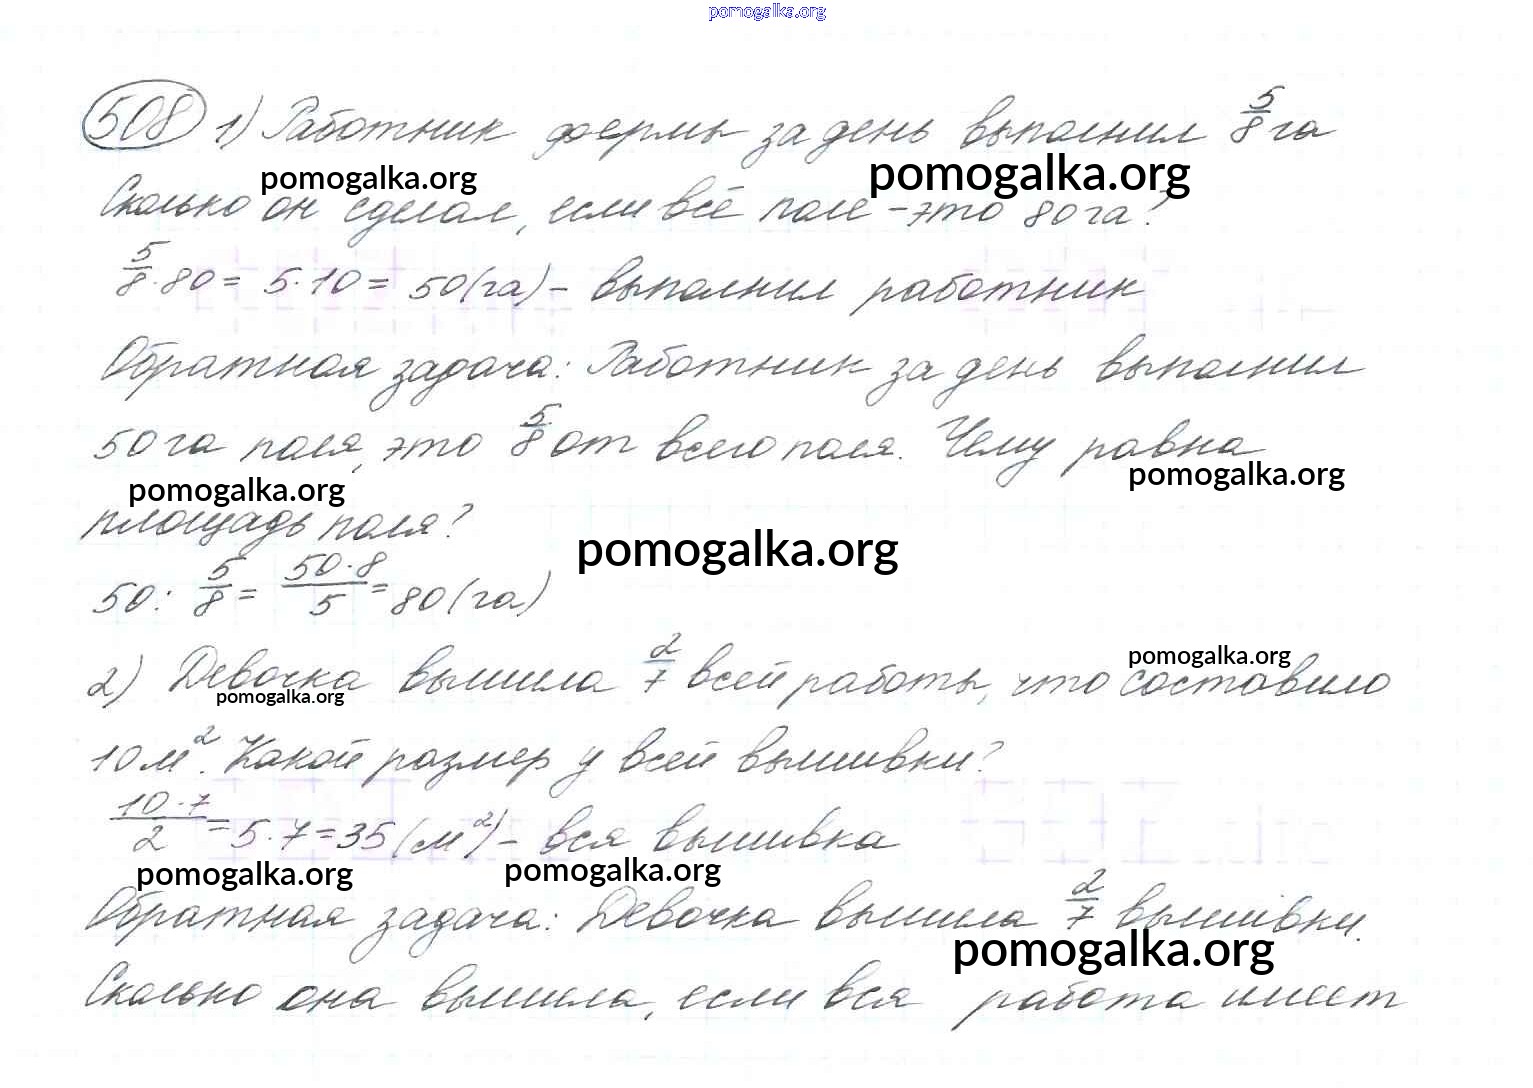 pomogalka.org
508 1) Работник фермы за день выполнил 5/8 га
pomogalka.org pomogalka.org
Сколько он сделал, если всё поле - это 80 га?
5/8 · 80 = 5 · 10 = 50 (га) - выполнил работник
Обратная задача: Работник за день выполнил
50 га поля, это 5/8 от всего поля. Чему равна
pomogalka.org pomogalka.org
площадь поля?
pomogalka.org
50 : 5/8 = 50 · 8/5 = 80 (га)
2) Девочка вышила 2/7 всей работы, что составило
pomogalka.org pomogalka.org
10 м². Какой размер у всей вышивки?
10 · 7/2 = 5 · 7 = 35 (м²) - вся вышивка
pomogalka.org pomogalka.org
Обратная задача: Девочка вышила 2/7 вышивки.
pomogalka.org
Сколько она вышила, если вся работа имеет